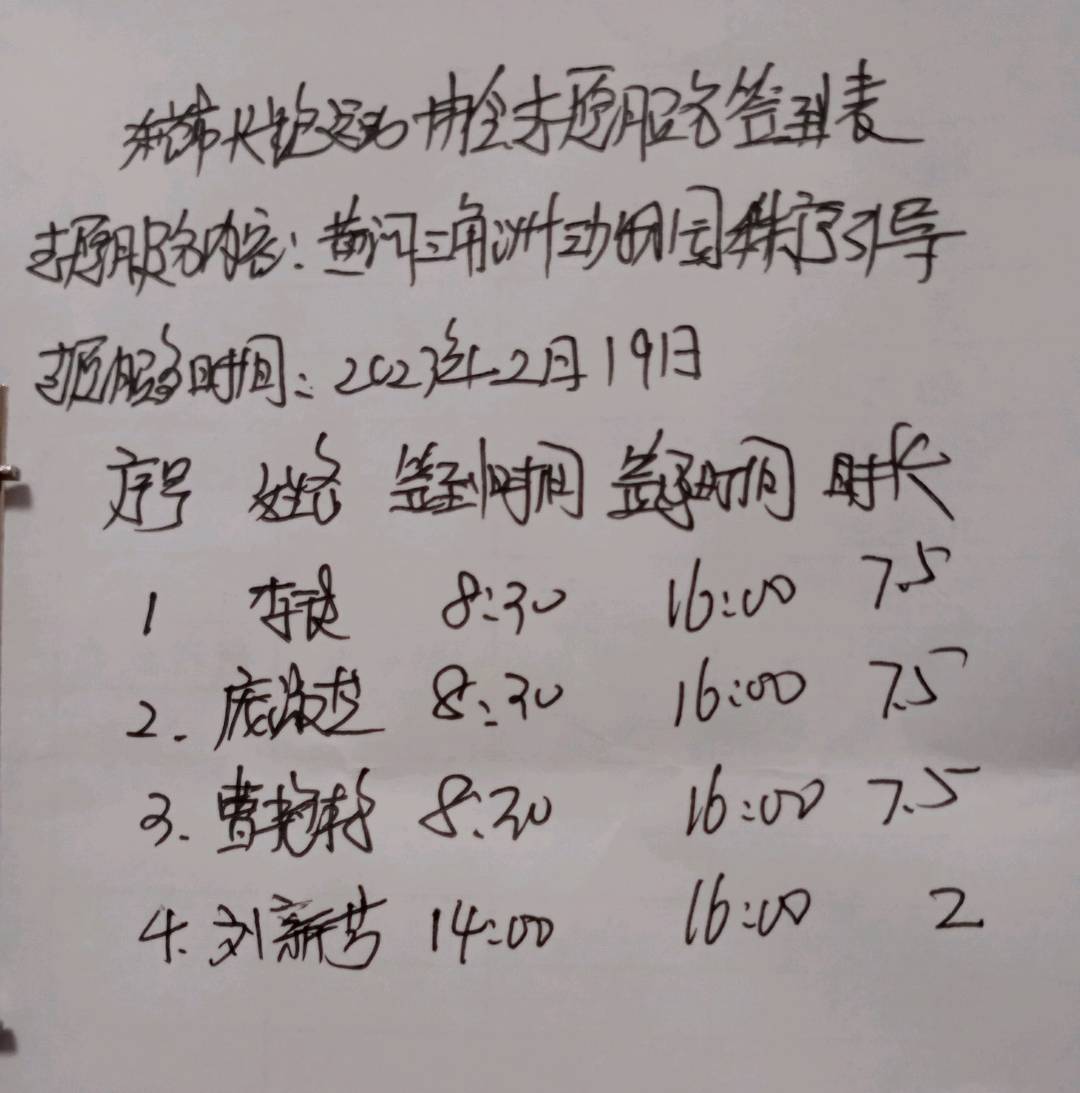 东营市长跑运动协会志愿服务签到表
志愿服务内容：黄河三角洲动物园秩序引导
志愿服务时间：2023年2月19日
序号 姓名 签到时间 签退时间 时长
1 8:30 16:00 7.5
2. 8:30 16:00 7.5
3. 曹艳 8:30 16:00 7.5
4. 刘新芳 14:00 16:00 2